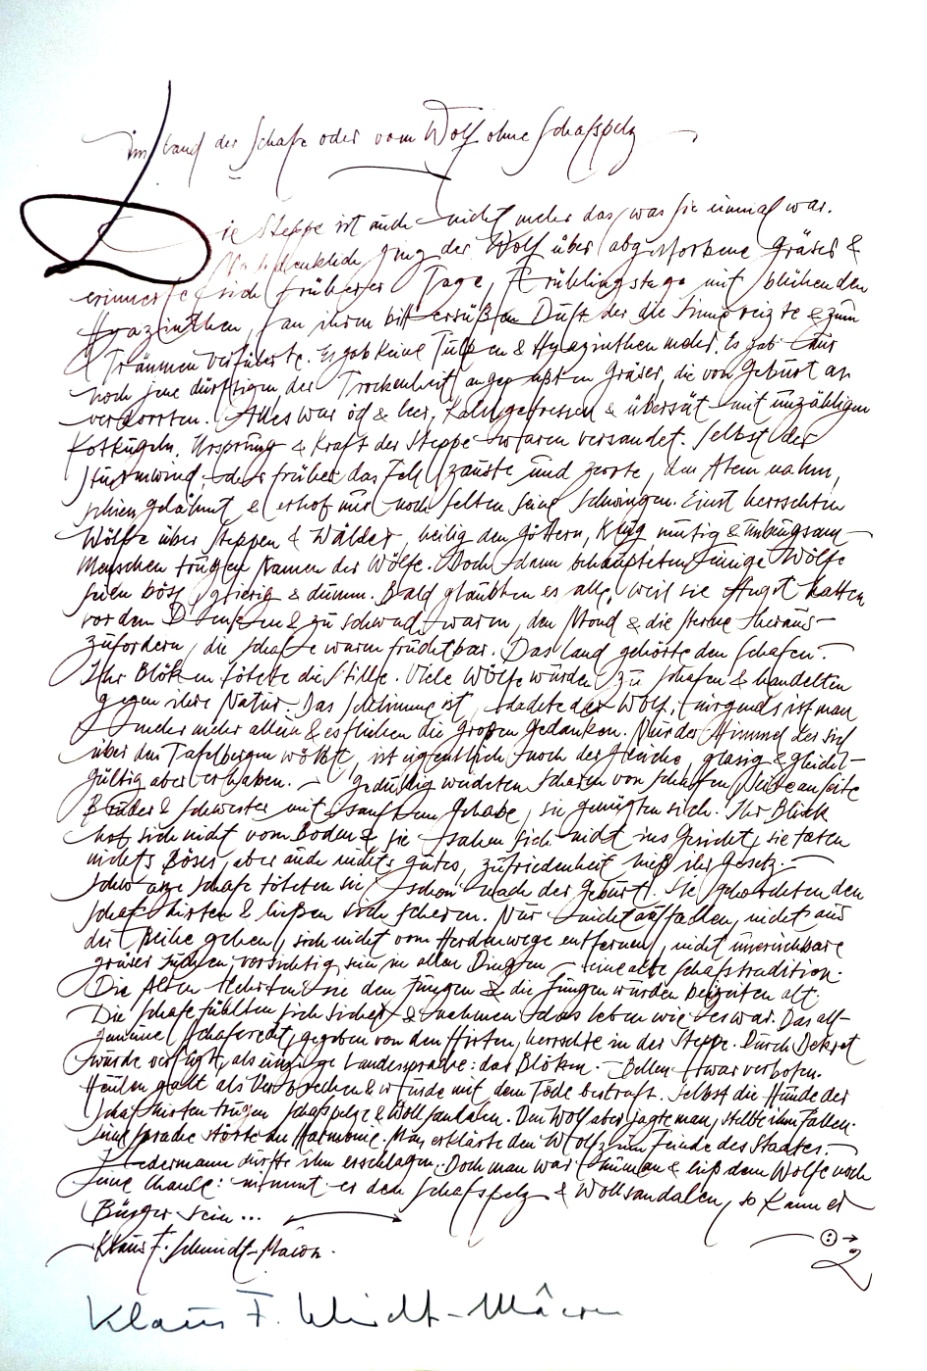 im Land der Schafe oder vom Wolf ohne Schafspelz
Die Steppe ist auch nicht mehr das, was sie einmal war.
Nachdenklich ging der Wolf über abgestorbene Gräser &
erinnerte sich früherer Tage, Frühlingstage mit blühenden
Hyazinthen, an ihren bittersüßen Duft der die Sinne reizte & zum
Träumen verführte. Es gab keine Tulpen & Hyazinthen mehr. Es gab nur
noch jene dürftigen, der Trockenheit angepaßten Gräser, die von Geburt an
verdorrten. Alles war öd & leer, kahlgefressen & übersät mit unzähligen
Kotkugeln. Ursprung & Kraft der Steppe waren versandet. Selbst der
Sturmwind, der früher das Fell zauste und zerrte, den Atem nahm,
schien gelähmt & erhob nur noch selten seine Schwingen. Einst herrschten
Wölfe über Steppen & Wälder, heilig den Göttern, klug mutig & unbeugsam
Menschen trugen Namen der Wölfe. Doch dann behaupteten einige Wölfe
seien böse, gierig & dumm. Bald glaubten es alle, weil sie Angst hatten
vor dem Denken & zu schwach waren, den Mond & die Sterne heraus-
zufordern, die Schafe waren fruchtbar. Das Land gehörte den Schafen.
Ihr Blöken tötete die Stille. Viele Wölfe wurden zu Schafen & handelten
gegen ihre Natur. Das Schlimme ist, dachte der Wolf, nirgends ist man
mehr allein & es fliehen die großen Gedanken. Nur der Himmel der sich
über den Tafelbergen wölbt, ist eigentlich noch der gleiche, glasig & gleich-
gültig aber erhaben. — Geduldig weideten Scharen von Schafen Seite an Seite
Brüder & Schwester mit sanftem Gehabe, sie genügten sich. Ihr Blick
hob sich nicht vom Boden & sie sahen sich nicht ins Gesicht, sie taten
nichts Böses, aber auch nichts gutes, Zufriedenheit hieß ihr Gesetz. —
Schwarze Schafe töteten sie schon nach der Geburt. Sie gehorchten den
Schafhirten & ließen sich scheren. Nur nicht auffallen, nicht aus
der Reihe gehen, sich nicht vom Herdenwege entfernen, nicht unerreichbare
gräser suchen, vorsichtig sein in allen Dingen — eine alte Schafstradition.
Die Alten lehrten sie den Jungen & die Jungen wurden beizeiten alt.
Die Schafe fühlten sich sicher & nahmen das Leben wie es war. Das all-
gemeine Schafsrecht, gegeben von den Hirten, herrschte in der Steppe. Durch Dekret
wurde verfügt, als einzige Landessprache: das Blöken. Bellen war verboten.
Heulen galt als Verbrechen & wurde mit dem Tode bestraft. Selbst die Hunde der
Schafhirten trugen Schafspelze & Wollsandalen. Den Wolf aber jagte man, stellte ihm Fallen.
Seine Sprache störte die Harmonie. Man erklärte den Wolf zum Feinde des Staates.
Jedermann durfte ihn erschlagen. Doch man war human & ließ dem Wolfe noch
eine Chance: nimmt er den Schafspelz & Wollsandalen, so kann er
Bürger sein...
Klaus F. Schmidt-Mâcon.
2
Klaus F. Schmidt-Mâcon